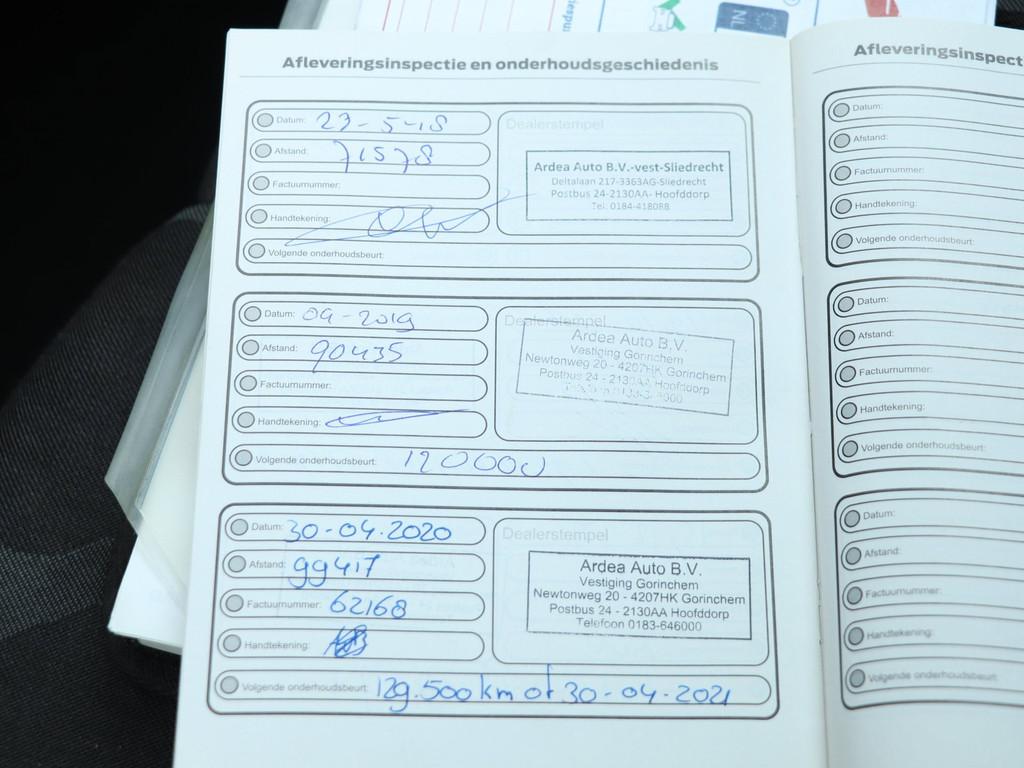 Afleveringsinspectie en onderhoudsgeschiedenis
Datum: 23-5-18
Afstand: 71578
Factuurnummer:
Handtekening:
Volgende onderhoudsbeurt:
Dealerstempel
Ardea Auto B.V.-vest-Sliedrecht
Deltalaan 217-3363AG-Sliedrecht
Postbus 24-2130AA- Hoofddorp
Tel. 0184-418088
Datum: 04-2019
Afstand: 90435
Factuurnummer:
Handtekening:
Volgende onderhoudsbeurt: 120000
Dealerstempel
Ardea Auto B.V.
Vestiging Gorinchem
Newtonweg 20 - 4207HK Gorinchem
Postbus 24 - 2130AA Hoofddorp
Datum: 30-04-2020
Afstand: 99417
Factuurnummer: 62168
Handtekening:
Volgende onderhoudsbeurt: 129.500 km of 30-04-2021
Dealerstempel
Ardea Auto B.V.
Vestiging Gorinchem
Newtonweg 20 - 4207HK Gorinchem
Postbus 24 - 2130AA Hoofddorp
Telefoon 0183-646000
Afleveringsinspect
Datum:
Afstand:
Factuurnummer:
Handtekening:
Volgende onderhoudsbeurt:
Datum:
Afstand:
Factuurnummer:
Handtekening:
Volgende onderhoudsbeurt:
Datum:
Afstand:
Factuurnummer:
Handtekening:
Volgende onderhoudsbeurt:
NL